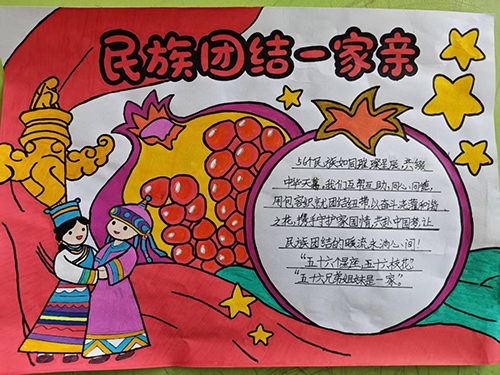 民族团结一家亲
56个民族如同璀璨星辰,共缀
中华天幕,我们互帮互助,同心同德,
用包容织就团结纽带以奋斗浇灌和
之花,携手守护家国情,共赴中国梦,让
民族团结的暖流永沁心间!
“五十六个星座,五十六枝花。
“五十六兄弟姐妹是一家”。